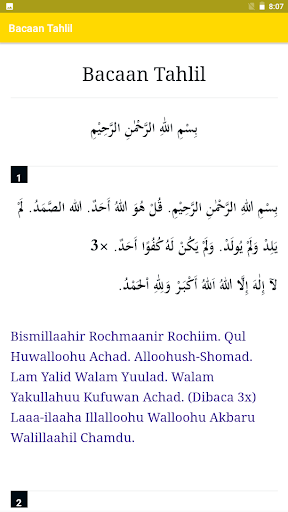 8:07
Bacaan Tahlil
Bacaan Tahlil
بِسْمِ اللهِ الرَّحْمٰنِ الرَّحِيْمِ
1
بِسْمِ اللهِ الرَّحْمٰنِ الرَّحِيْمِ. قُلْ هُوَ اللهُ أَحَدٌ. الله الصَّمَدُ. لَمْ
يَلِدْ وَلَمْ يُولَدْ. وَلَمْ يَكُنْ لَهُ كُفُوًا أَحَدٌ. ×3
لآ إِلٰهَ إِلَّا اللهُ اَللهُ أَكْبَرُ وَلِلّٰهِ اْلحَمْدُ.
Bismillaahir Rochmaanir Rochiim. Qul
Huwalloohu Achad. Alloohush-Shomad.
Lam Yalid Walam Yuulad. Walam
Yakullahuu Kufuwan Achad. (Dibaca 3x)
Laaa-ilaaha Illalloohu Walloohu Akbaru
Walillaahil Chamdu.
2